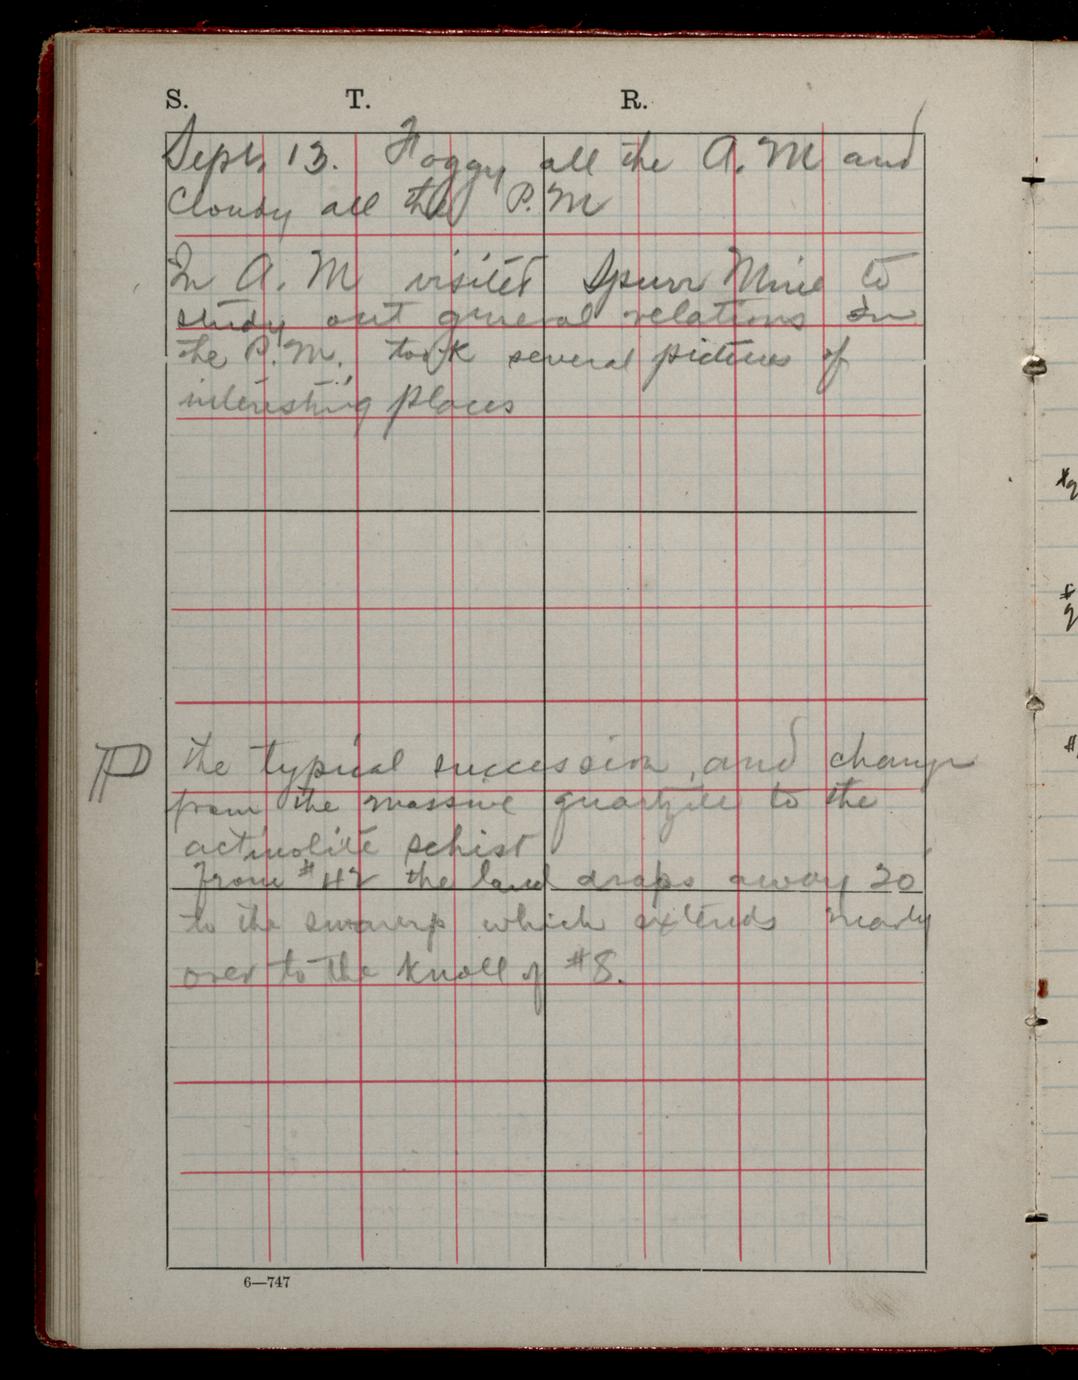 S. T. R.
Sept. 13. Foggy all the A.M and
Cloudy all the P.M
In A.M visited Spurr Mine to
study out general relations In
the P.M. took several pictures of
interesting places
the typical succession, and change
from the massive quartzite to the
actinolite schist
From #42 the land drops away 20
to the swamp which extends nearly
over to the knoll of #8.
6—747